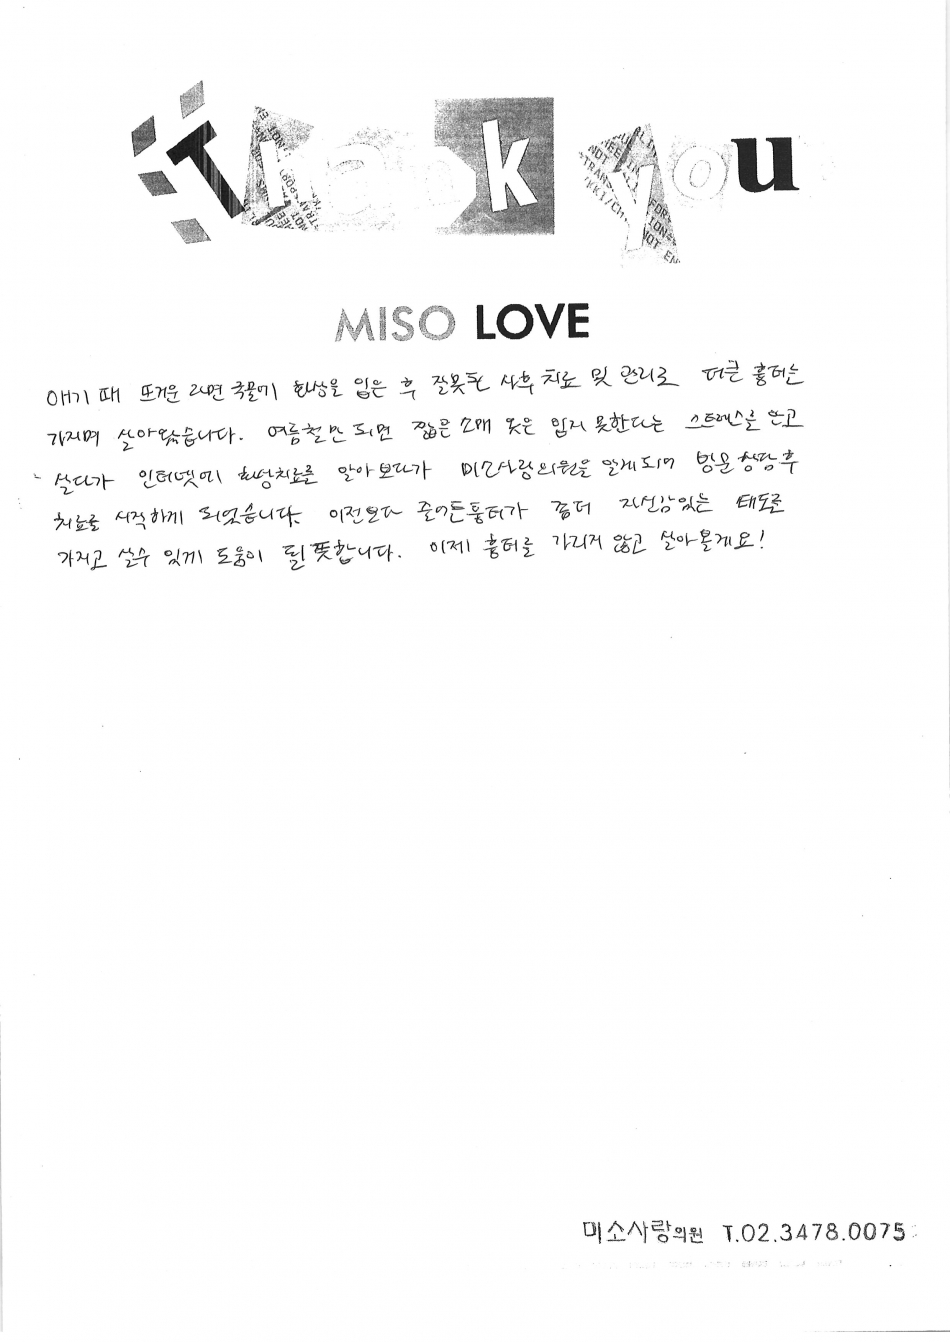 Thank you
MISO LOVE
애기 때 뜨거운 라면 국물에 화상을 입은 후 잘못된 사후 치료 및 관리로 더큰 흉터는
가지며 살아왔습니다. 여름철만 되면 짧은 소매 옷은 입지 못한다는 스트레스를 안고
살다가 인터넷에 화상치료를 알아보다가 미소사랑의원을 알게되어 방문상담 후
치료를 시작하게 되었습니다. 이전보다 줄어든흉터가 좀더 자신감있는 태도로
가지고 살수 있게 도움이 될 듯합니다. 이제 흉터를 가리지 않고 살아볼게요!
미소사랑의원 T.02.3478.0075